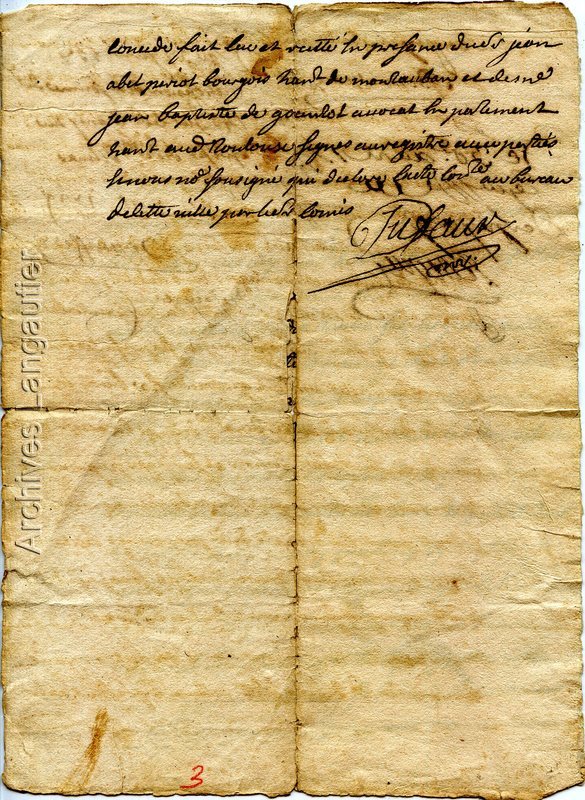 concede fait leu et recitté En presance du Sr jean
abel periot bourgois hant de montauban et de me
jean baptiste de avocat En parlement
hant aud Toulouse signes au registre avec parties
Et nous nore soussigné qui declare laete au bureau
de cette ville par led comis
Dufaur
nore
Archives Langautier
3